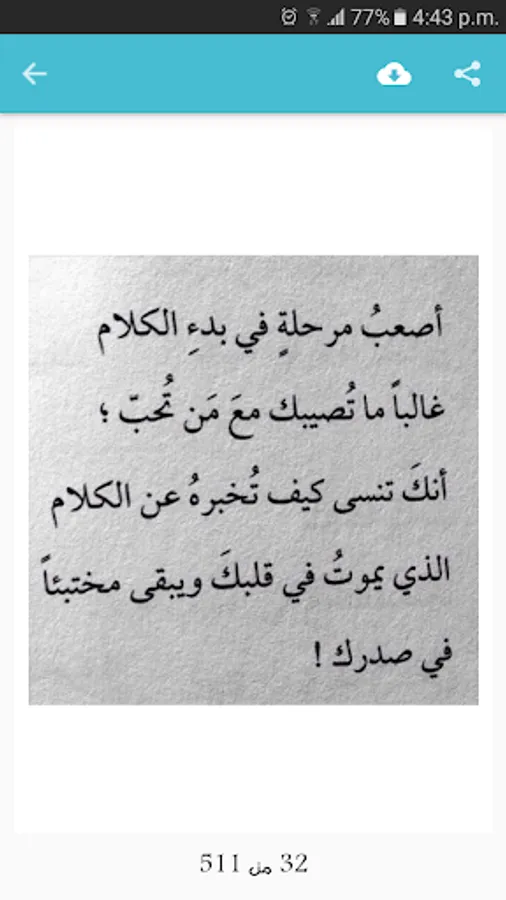 77% 4:43 p.m.
أصعبُ مرحلةٍ في بدءِ الكلام
غالباً ما تُصيبك معَ مَن تُحبّ ؛
أنكَ تنسى كيف تُخبرهُ عن الكلام
الذي يموتُ في قلبكَ ويبقى مختبئاً
في صدرك !
32 من 511